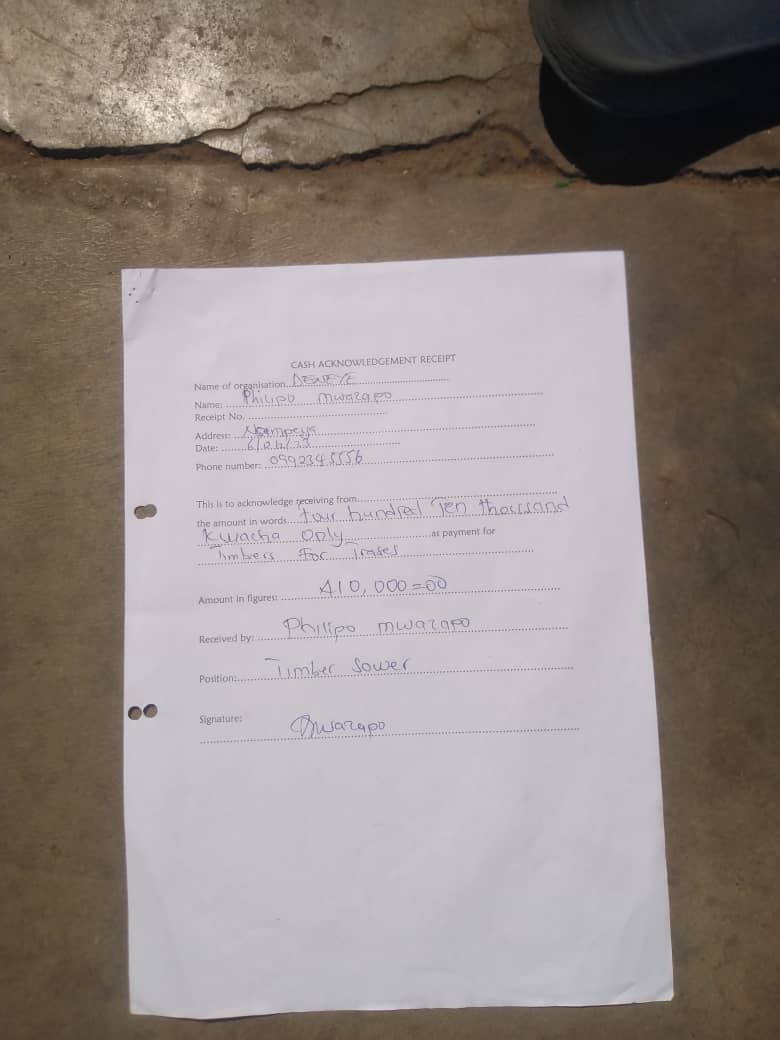 CASH ACKNOWLEDGEMENT RECEIPT
Name of organisation
Name: Philipo mwazapo
Receipt No.
Address:
Date:
Phone number: 0992345556
This is to acknowledge receiving from
the amount in words four hundred Ten thousand
Kwacha Only as payment for
Timbers For Trases
Amount in figures: 410,000=00
Received by: Philipo mwazapo
Position: Timber Sower
Signature: mwazapo